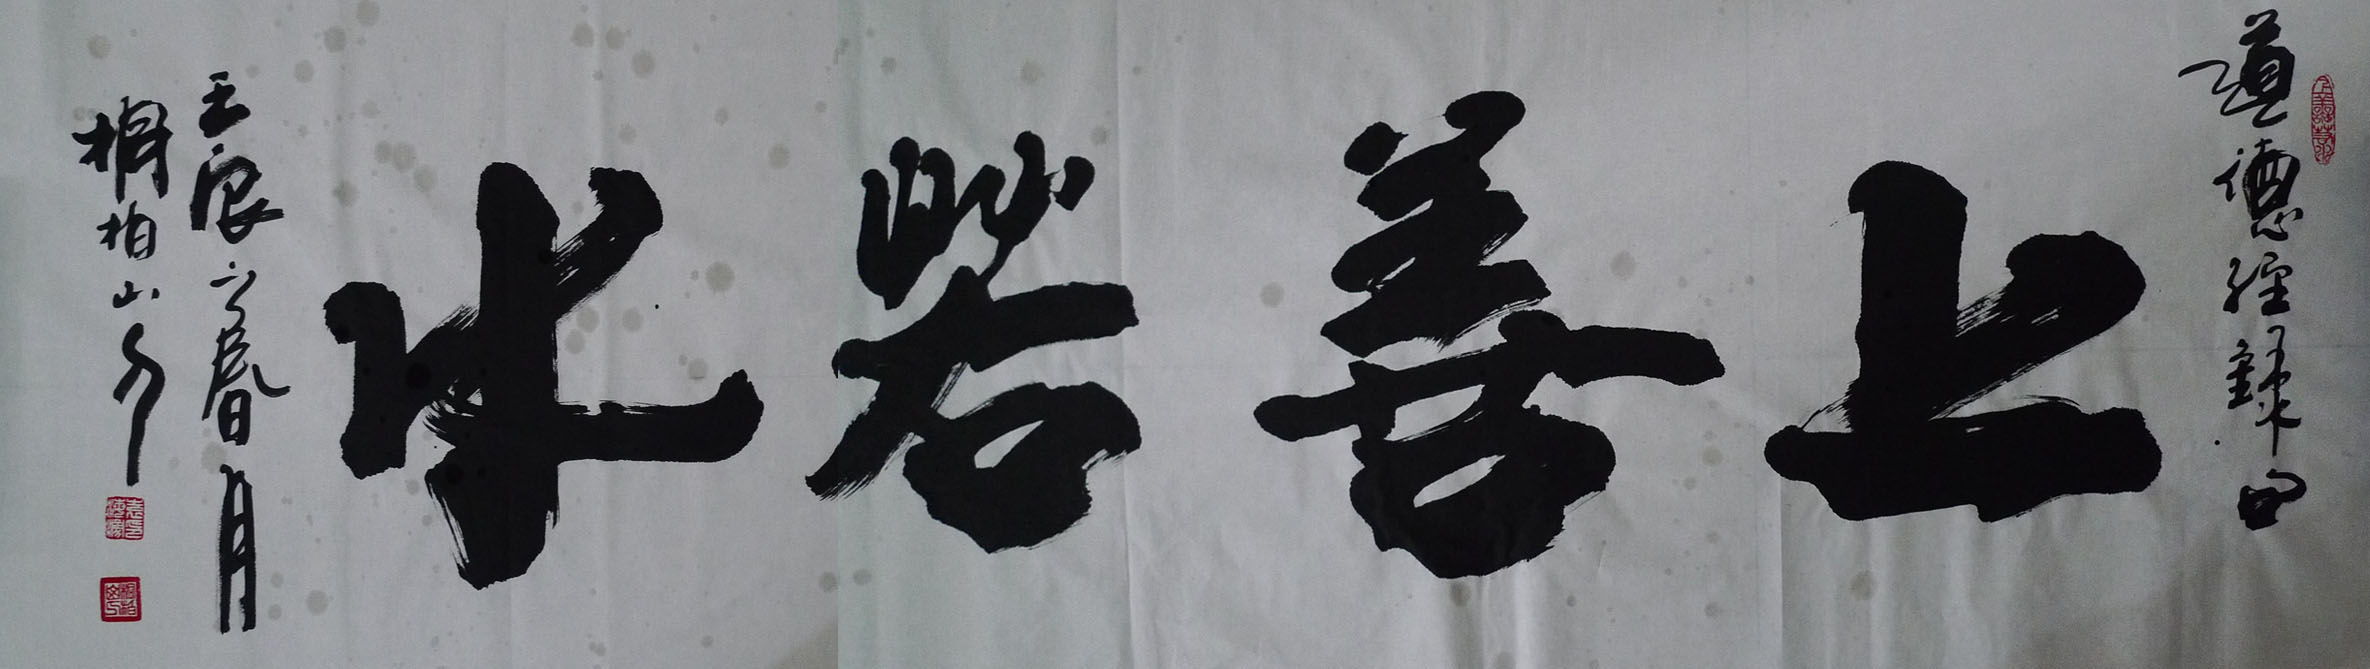 道德經錄
上善若水
壬辰之春月
桐柏山